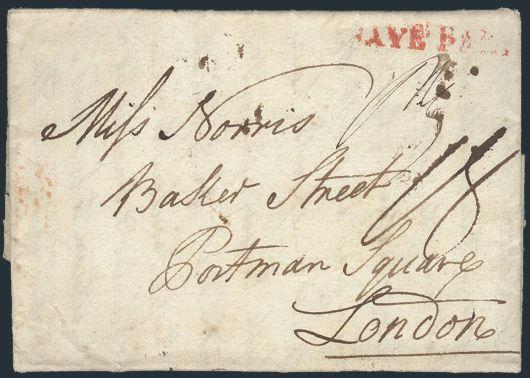 Miſs Norris
Baker Street
Portman Square
London